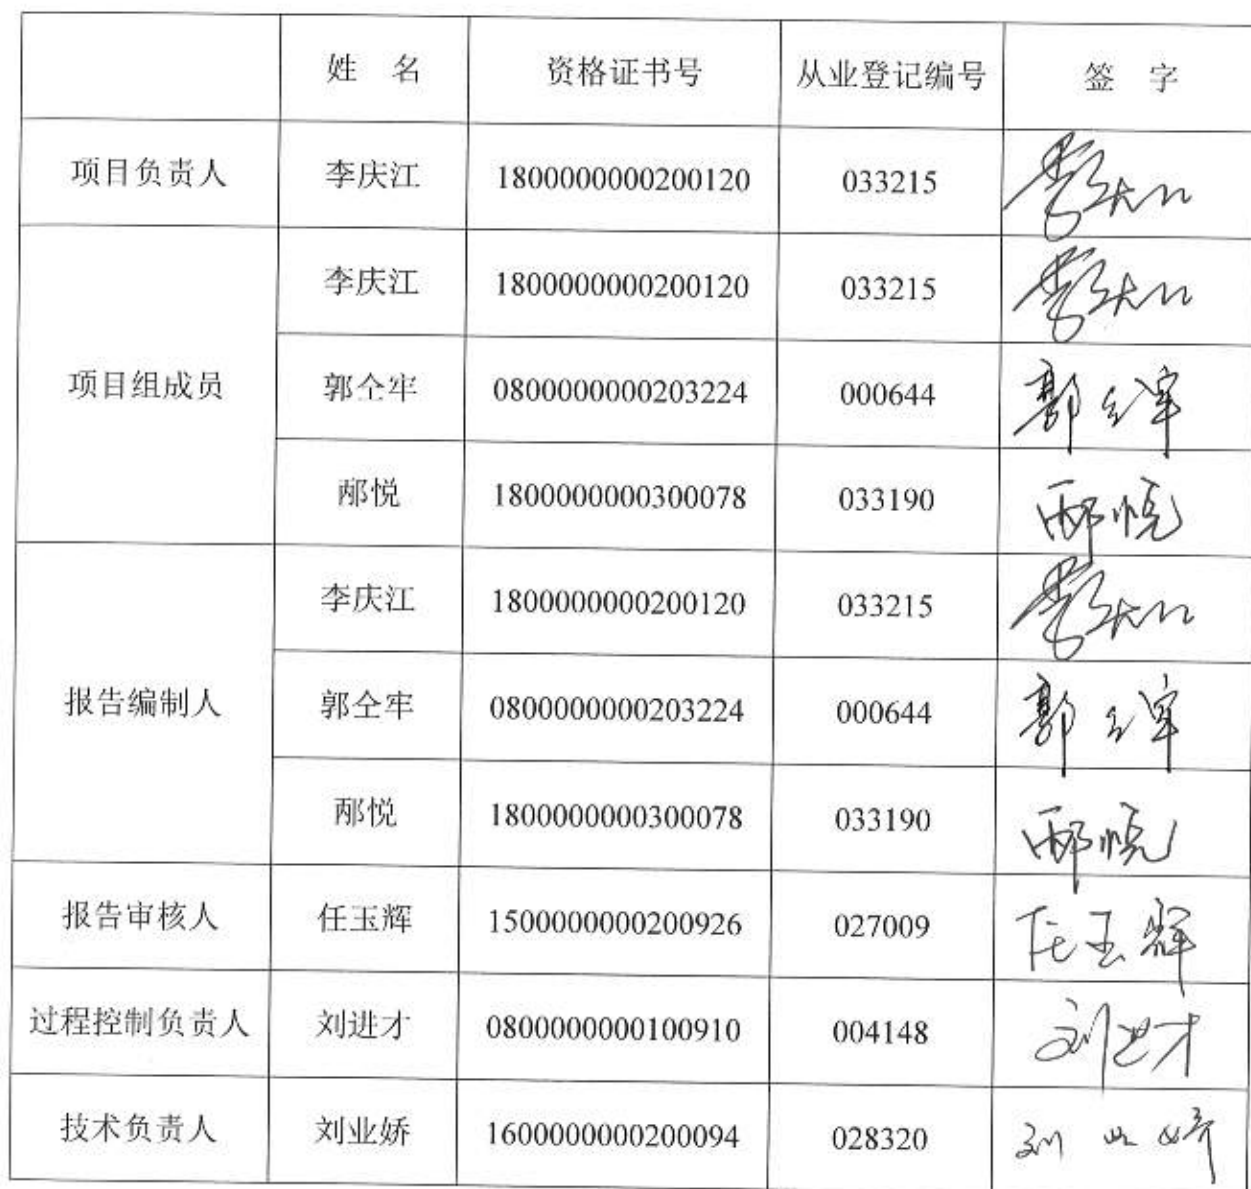 姓 名 资格证书号 从业登记编号 签 字
项目负责人 李庆江 1800000000200120 033215
项目组成员 李庆江 1800000000200120 033215
郭仝牢 0800000000203224 000644 郭仝牢
邴悦 1800000000300078 033190 邴悦
报告编制人 李庆江 1800000000200120 033215
郭仝牢 0800000000203224 000644 郭仝牢
邴悦 1800000000300078 033190 邴悦
报告审核人 任玉辉 1500000000200926 027009 任玉辉
过程控制负责人 刘进才 0800000000100910 004148 刘进才
技术负责人 刘业娇 1600000000200094 028320 刘业娇